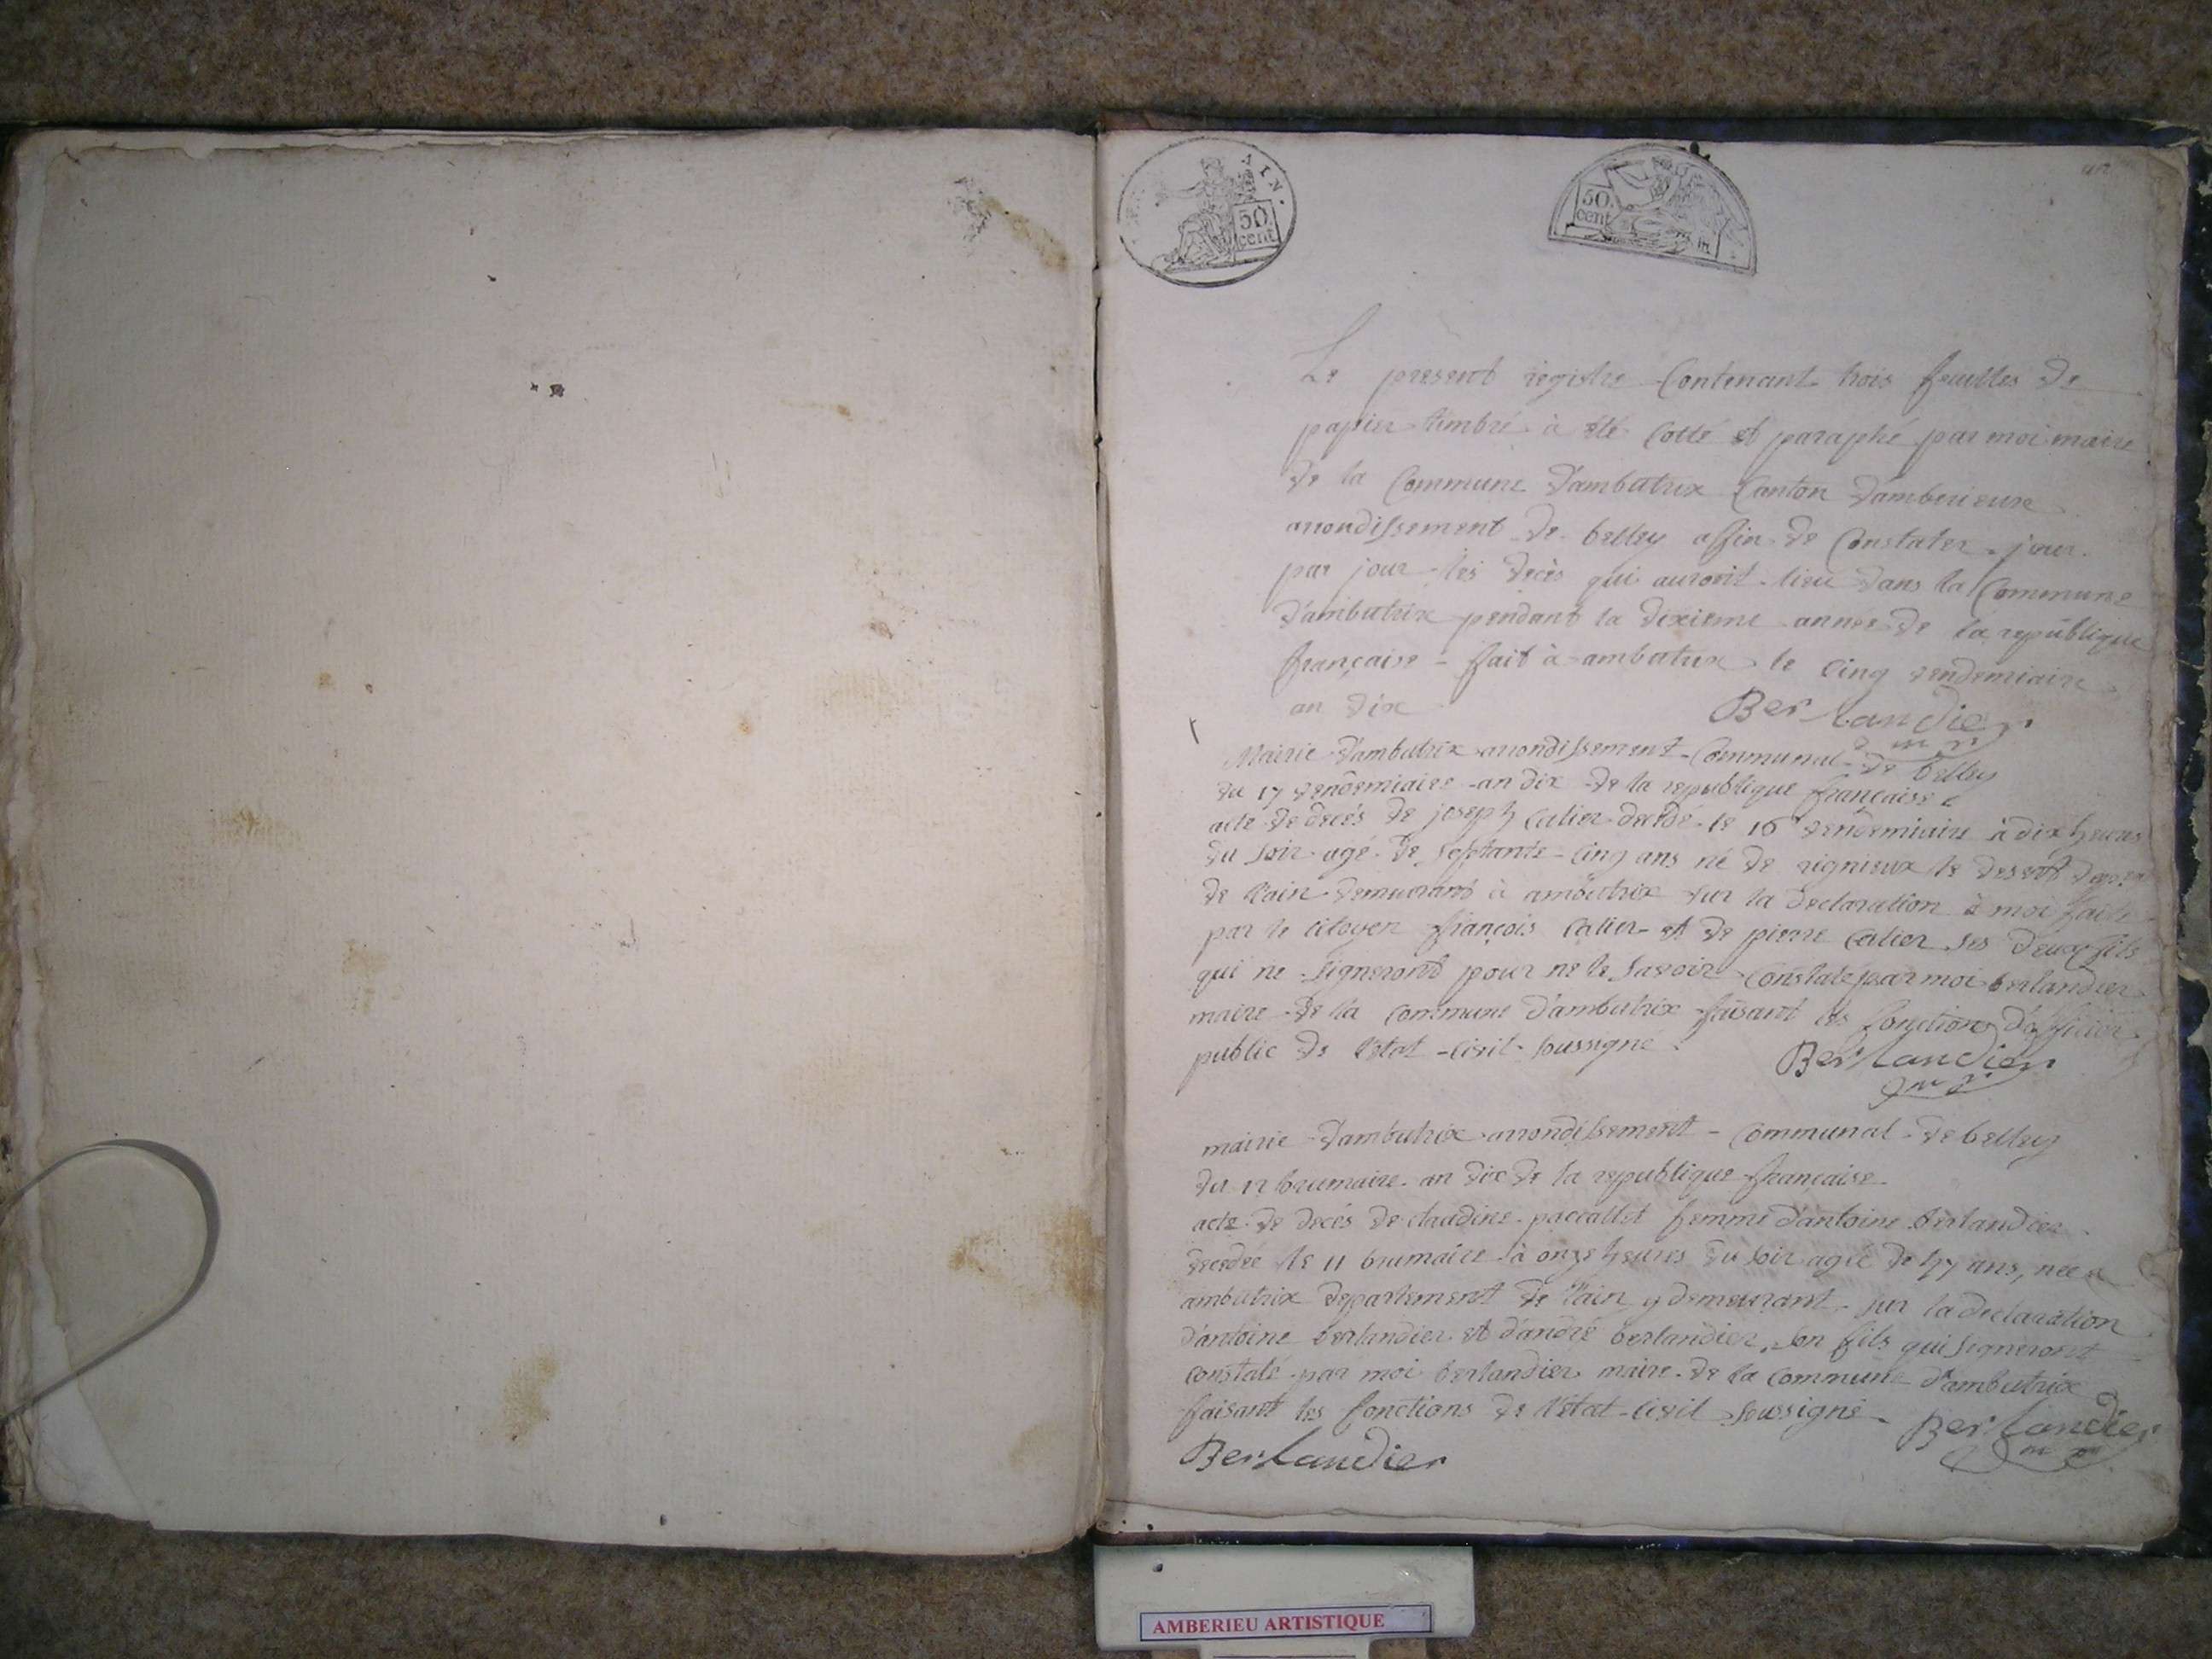 AIN.
50 cent
50. cent
Le présent registre Contenant trois feuilles de
papier timbré à été Cotté et paraphé par moi maire
de la Commune d'ambutrix Canton d'amberieux
arrondissement de belley affin de Constater jour
par jour les decès qui auront lieu dans la Commune
d'ambutrix pendant la dixieme année de la republique
française - fait à ambutrix le Cinq vendemiaire
an dix
Berlandier
Mairie d'ambutrix arrondissement Communal de belley
du 17 vendemiaire an dix de la republique française
acte de decés de joseph décédé le 16 vendemiaire à dix heures
du soir agé de septante cinq ans né de rignieux le desert
de l'ain demurant à ambutrix sur la declaration à moi faite
par le citoyen françois et de pierre ses deux fils
qui ne signeront pour ne le savoir Constaté par moi berlandier
maire de la commune d'ambutrix faisant les fonctions d'officier
public de l'état civil soussigné
Berlandier
mairie d'ambutrix arrondissement - Communal de belley
du 12 brumaire an dix de la republique française
acte de decés de claudine femme d'antoine berlandier
decedée le 11 brumaire à onze heures du soir agée de ans, née a
ambutrix departement de l'ain y demeurant sur la declaration
d'antoine berlandier et d'andré berlandier son fils qui signeront
constaté par moi berlandier maire de la commune d'ambutrix
faisant les fonctions de l'état civil soussigné
Berlandier
Berlandier
AMBERIEU ARTISTIQUE